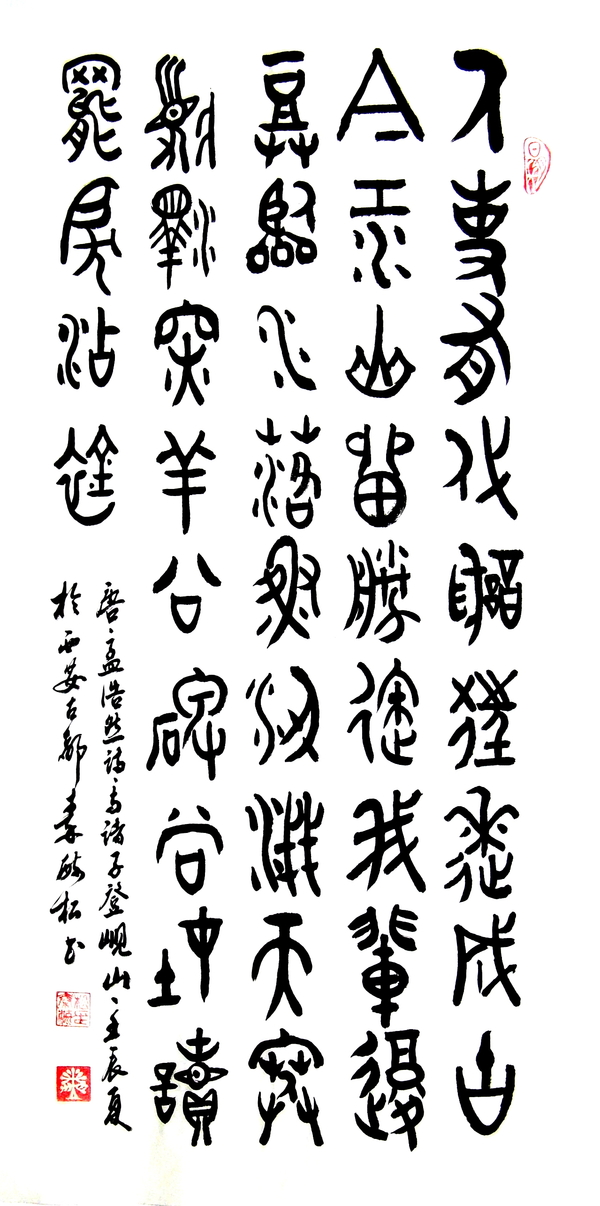 人事有代謝往來成古
今江山留勝迹我輩復
登臨水落魚梁淺天寒
夢澤深羊公碑尚在讀
罷淚沾襟
唐孟浩然詩与諸子登峴山壬辰夏
於西安古都李松书